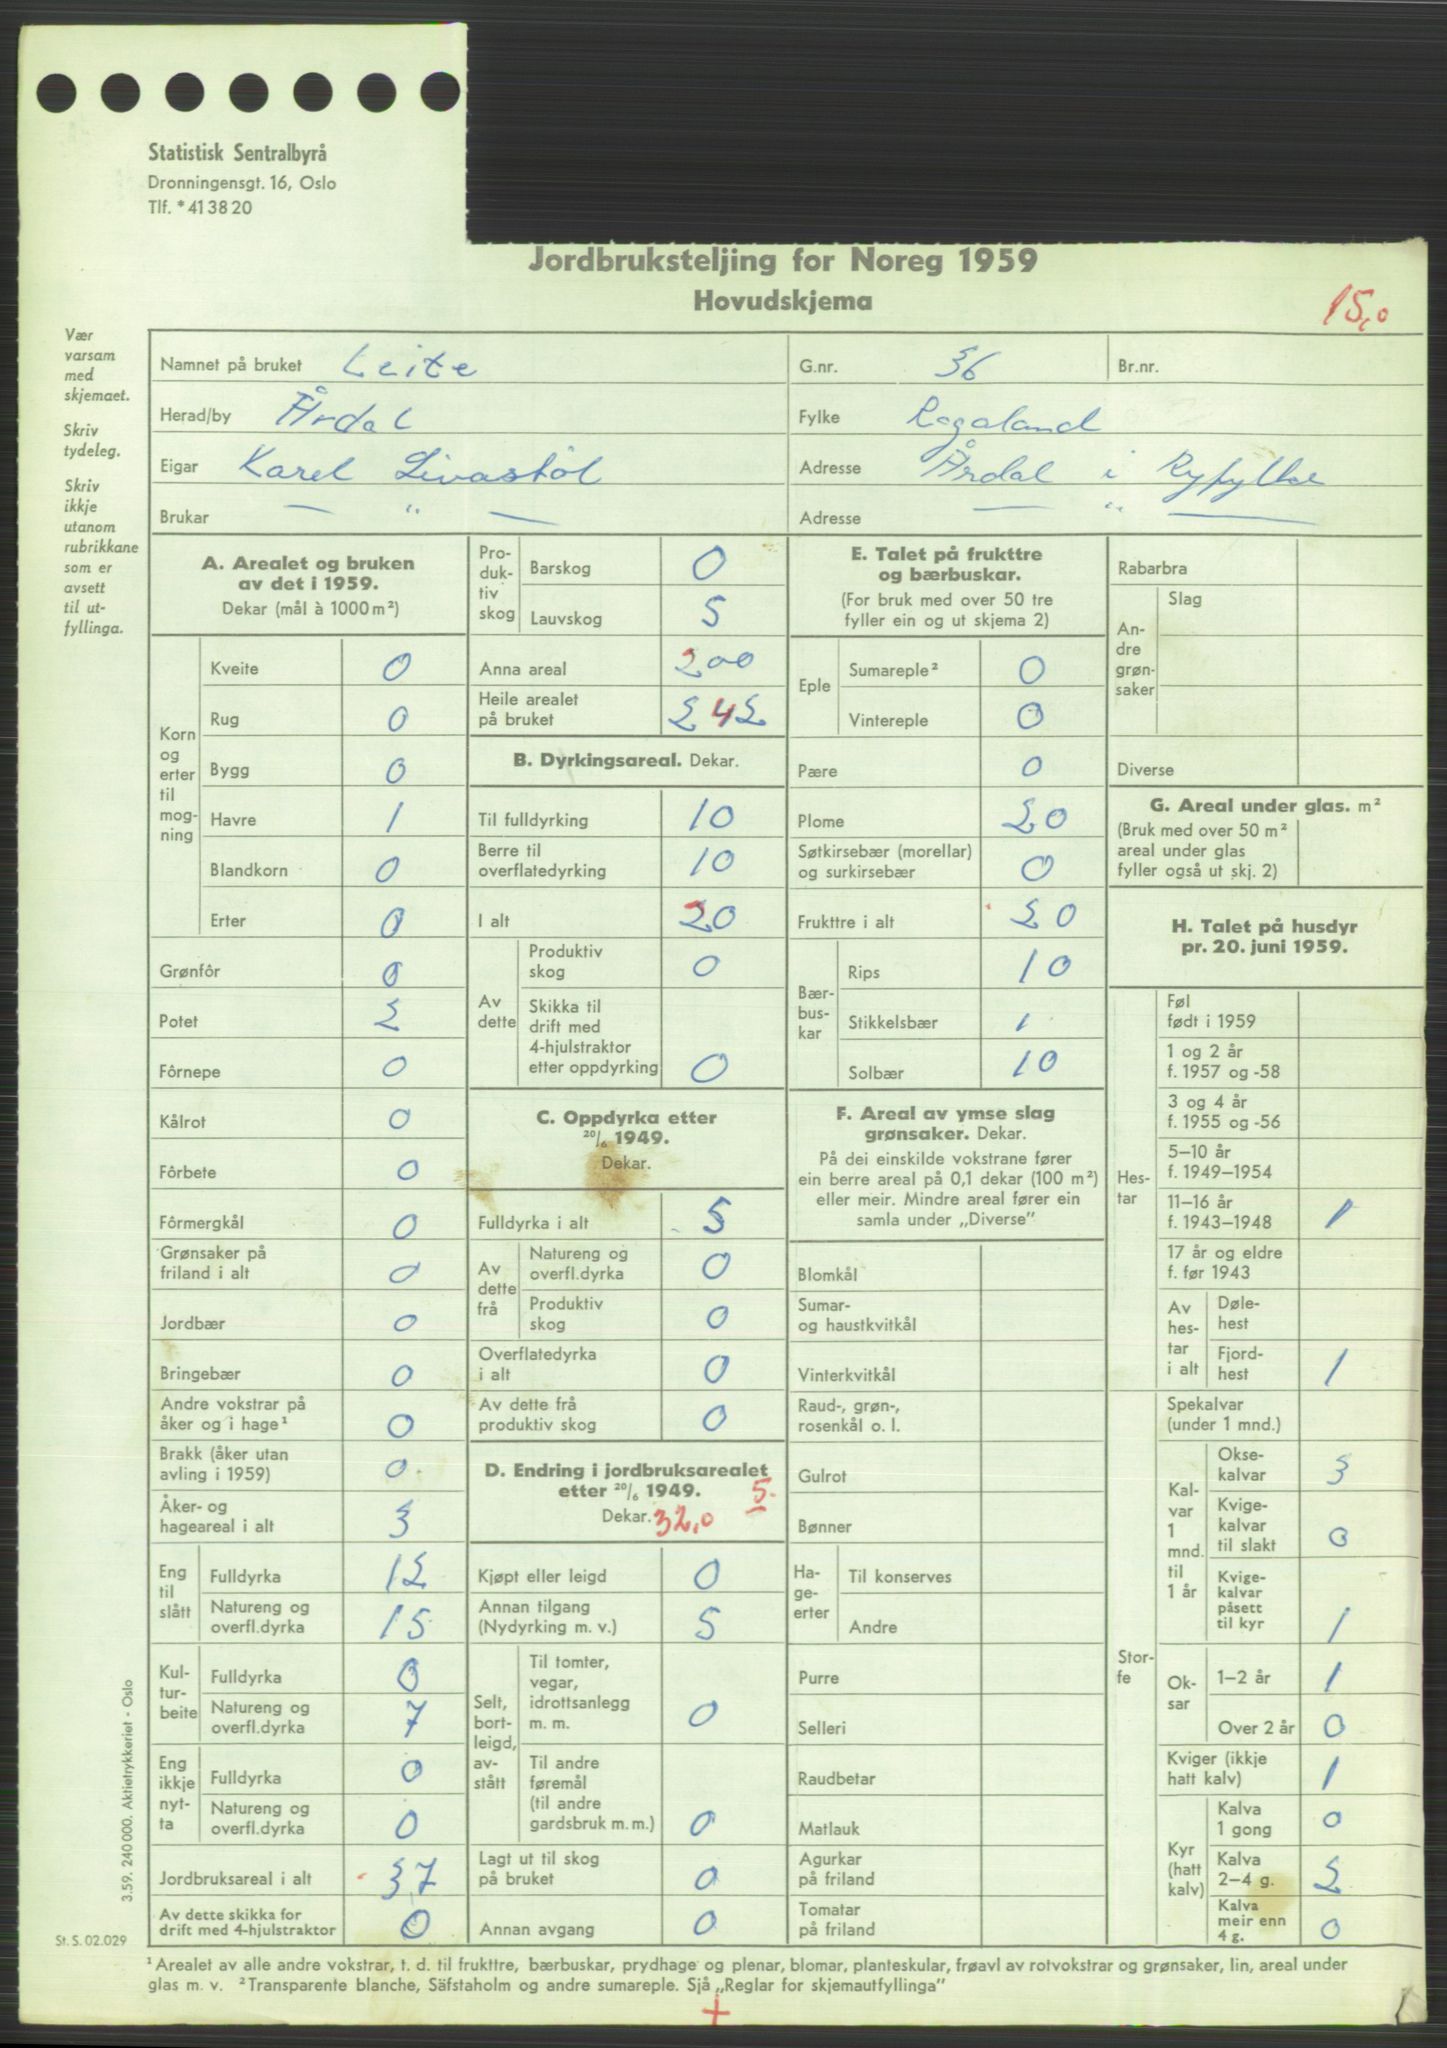 Statistisk Sentralbyrå
Dronningensgt. 16, Oslo
Tlf. *41 38 20
Jordbruksteljing for Noreg 1959
Hovudskjema
15,0
Vær
varsam
med
skjemaet.
Skriv
tydeleg.
Skriv
ikkje
utanom
rubrikkane
som er
avsett
til ut-
fyllinga.
Namnet på bruket Leite G.nr. 36 Br.nr.
Herad/by Årdal Fylke Rogaland
Eigar Karel Livastøl Adresse Årdal i Ryfylke
Brukar — " — Adresse — " —
A. Arealet og bruken
av det i 1959.
Dekar (mål à 1000 m²)
Korn
og
erter
til
mog-
ning
Kveite 0
Rug 0
Bygg 0
Havre 1
Blandkorn 0
Erter 0
Grønfôr 0
Potet 2
Fôrnepe 0
Kålrot 0
Fôrbete 0
Fôrmergkål 0
Grønsaker på
friland i alt 0
Jordbær 0
Bringebær 0
Andre vokstrar på
åker og i hage¹ 0
Brakk (åker utan
avling i 1959) 0
Åker- og
hageareal i alt 3
Eng
til
slått
Fulldyrka 12
Natureng og
overfl.dyrka 15
Kul-
tur-
beite
Fulldyrka 0
Natureng og
overfl.dyrka 7
Eng
ikkje
nyt-
ta
Fulldyrka 0
Natureng og
overfl.dyrka 0
Jordbruksareal i alt 37
Av dette skikka for
drift med 4-hjulstraktor 0
Pro-
duk-
tiv
skog
Barskog 0
Lauvskog 5
Anna areal 200
Heile arealet
på bruket 242
B. Dyrkingsareal. Dekar.
Til fulldyrking 10
Berre til
overflatedyrking 10
I alt 20
Av
dette
Produktiv
skog 0
Skikka til
drift med
4-hjulstraktor
etter oppdyrking 0
C. Oppdyrka etter
20/6 1949.
Dekar.
Fulldyrka i alt 5
Av
dette
frå
Natureng og
overfl.dyrka 0
Produktiv
skog 0
Overflatedyrka
i alt 0
Av dette frå
produktiv skog 0
D. Endring i jordbruksarealet
etter 20/6 1949. 5.
Dekar. 32,0
Kjøpt eller leigd 0
Annan tilgang
(Nydyrking m. v.) 5
Selt,
bort-
leigd,
av-
stått
Til tomter,
vegar,
idrottsanlegg
m. m. 0
Til andre
føremål
(til andre
gardsbruk m. m.) 0
Lagt ut til skog
på bruket 0
Annan avgang 0
E. Talet på frukttre
og bærbuskar.
(For bruk med over 50 tre
fyller ein og ut skjema 2)
Eple
Sumareple² 0
Vintereple 0
Pære 0
Plome 20
Søtkirsebær (morellar)
og surkirsebær 0
Frukttre i alt 20
Bær-
bus-
kar
Rips 10
Stikkelsbær 1
Solbær 10
F. Areal av ymse slag
grønsaker. Dekar.
På dei einskilde vokstrane fører
ein berre areal på 0,1 dekar (100 m²)
eller meir. Mindre areal fører ein
samla under „Diverse"
Blomkål
Sumar-
og haustkvitkål
Vinterkvitkål
Raud-, grøn-,
rosenkål o. l.
Gulrot
Bønner
Ha-
ge-
erter
Til konserves
Andre
Purre
Selleri
Raudbetar
Matlauk
Agurkar
på friland
Tomatar
på friland
Rabarbra
An-
dre
grøn-
saker
Slag
Diverse
G. Areal under glas. m²
(Bruk med over 50 m²
areal under glas
fyller også ut skj. 2)
H. Talet på husdyr
pr. 20. juni 1959.
Hes-
tar
Føl
født i 1959
1 og 2 år
f. 1957 og -58
3 og 4 år
f. 1955 og -56
5–10 år
f. 1949–1954
11–16 år
f. 1943–1948 1
17 år og eldre
f. før 1943
Av
hes-
tar
i alt
Døle-
hest
Fjord-
hest 1
Stor-
fe
Spekalvar
(under 1 mnd.)
Kal-
var
1
mnd.
til
1 år
Okse-
kalvar 3
Kvige-
kalvar
til slakt 0
Kvige-
kalvar
påsett
til kyr 1
Ok-
sar
1–2 år 1
Over 2 år 0
Kviger (ikkje
hatt kalv) 1
Kyr
(hatt
kalv)
Kalva
1 gong 0
Kalva
2–4 g. 2
Kalva
meir enn
4 g. 0
3.59. 240 000. Aktietrykkeriet - Oslo
St. S. 02.029
¹ Arealet av alle andre vokstrar, t. d. til frukttre, bærbuskar, prydhage og plenar, blomar, planteskular, frøavl av rotvokstrar og grønsaker, lin, areal under
glas m. v. ² Transparente blanche, Säfstaholm og andre sumareple. Sjå „Reglar for skjemautfyllinga"
+